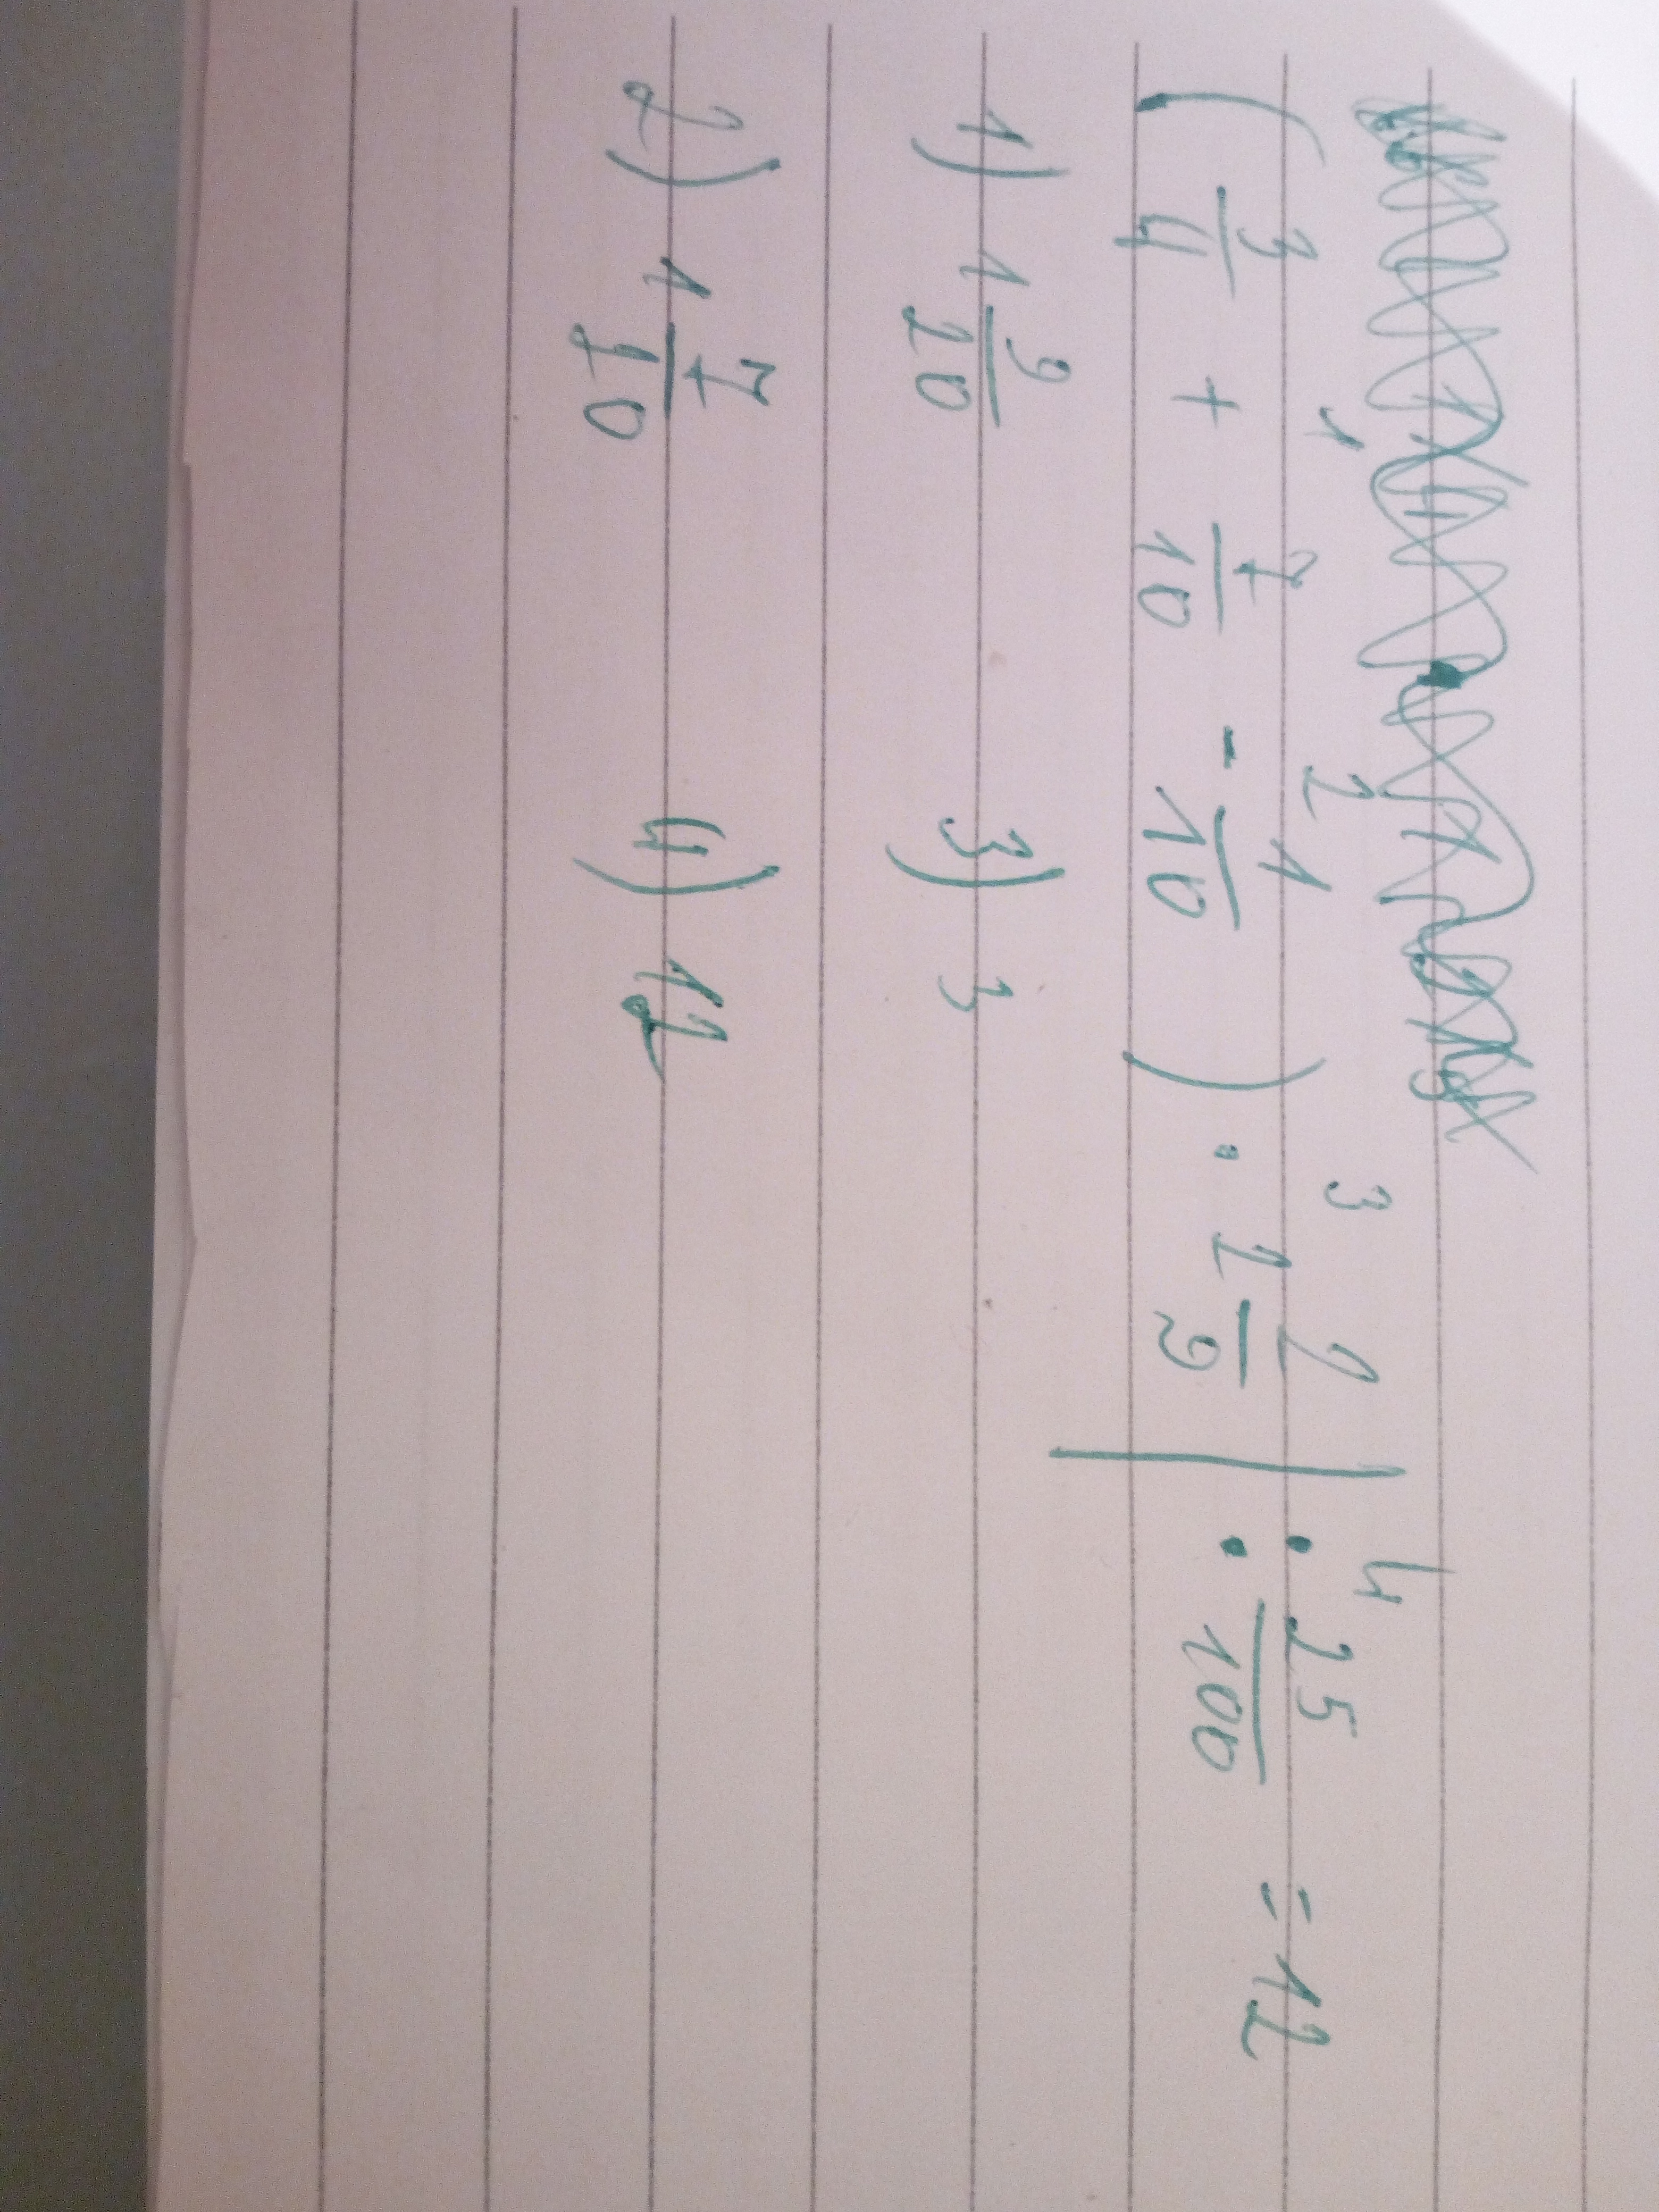 1 2 3 4
( 3/4 + 7/10 - 1/10 ) · 2 2/9 | : 25/100 = 12
1) 1 9/20 3) 3
2) 1 7/20 4) 12